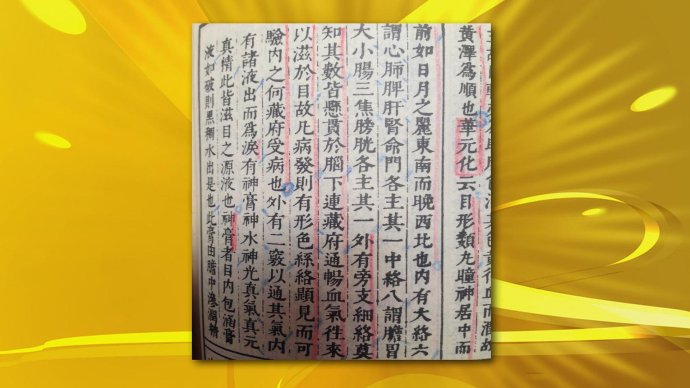 行血而潤
黃澤為順也華元化云目形類丸瞳神居中而
前如日月之麗東南而晚西北也內有大絡六
謂心肺脾肝腎命門各主其一中絡八謂膽胃
大小腸三焦膀胱各主其一外有旁支細絡莫
知其數皆懸貫於腦下連藏府通暢血氣往來
以滋於目故凡病發則有形色絲絡顯見而可
驗內之何藏府受病也外有二竅以通其氣內
有諸液出而為淚有神膏神水神光真氣真元
真精此皆滋目之源液也神膏者目內包涵膏
液如破則黑稠水出是也此膏由膽中滲潤精